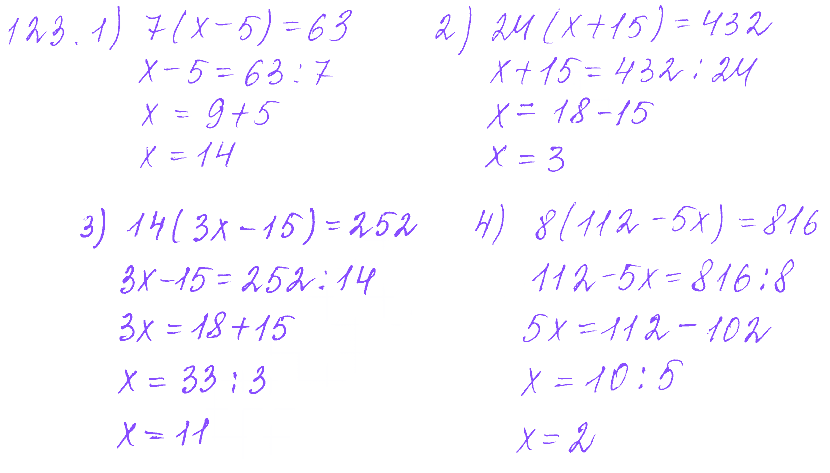 123. 1) 7(x-5)=63
x-5=63:7
x = 9+5
x = 14
2) 24(x+15)=432
x+15=432:24
x= 18-15
x = 3
3) 14(3x-15)=252
3x-15=252:14
3x=18+15
x = 33:3
x=11
4) 8(112-5x)=816
112-5x=816:8
5x=112-102
x = 10:5
x=2